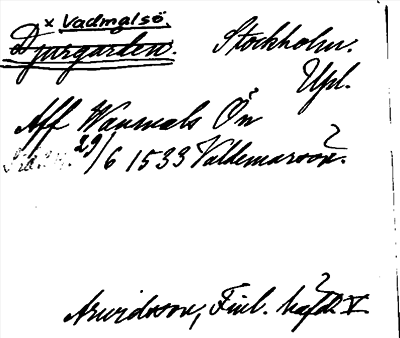 x Vadmalsö.
Djurgården. Stockholm.
Upl.
Aff Wanmals Ön
29/6 1533 Valdemarson?
Arwidsson, Finl. häfd. V